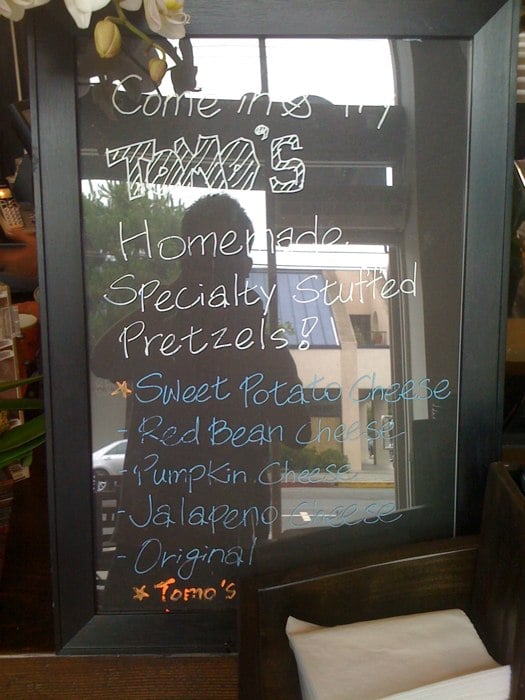 Come in & Try
TOMO'S
Homemade
Specialty Stuffed
Pretzels!
* Sweet Potato Cheese
- Red Bean Cheese
- Pumpkin Cheese
- Jalapeno Cheese
- Original
* Tomo's